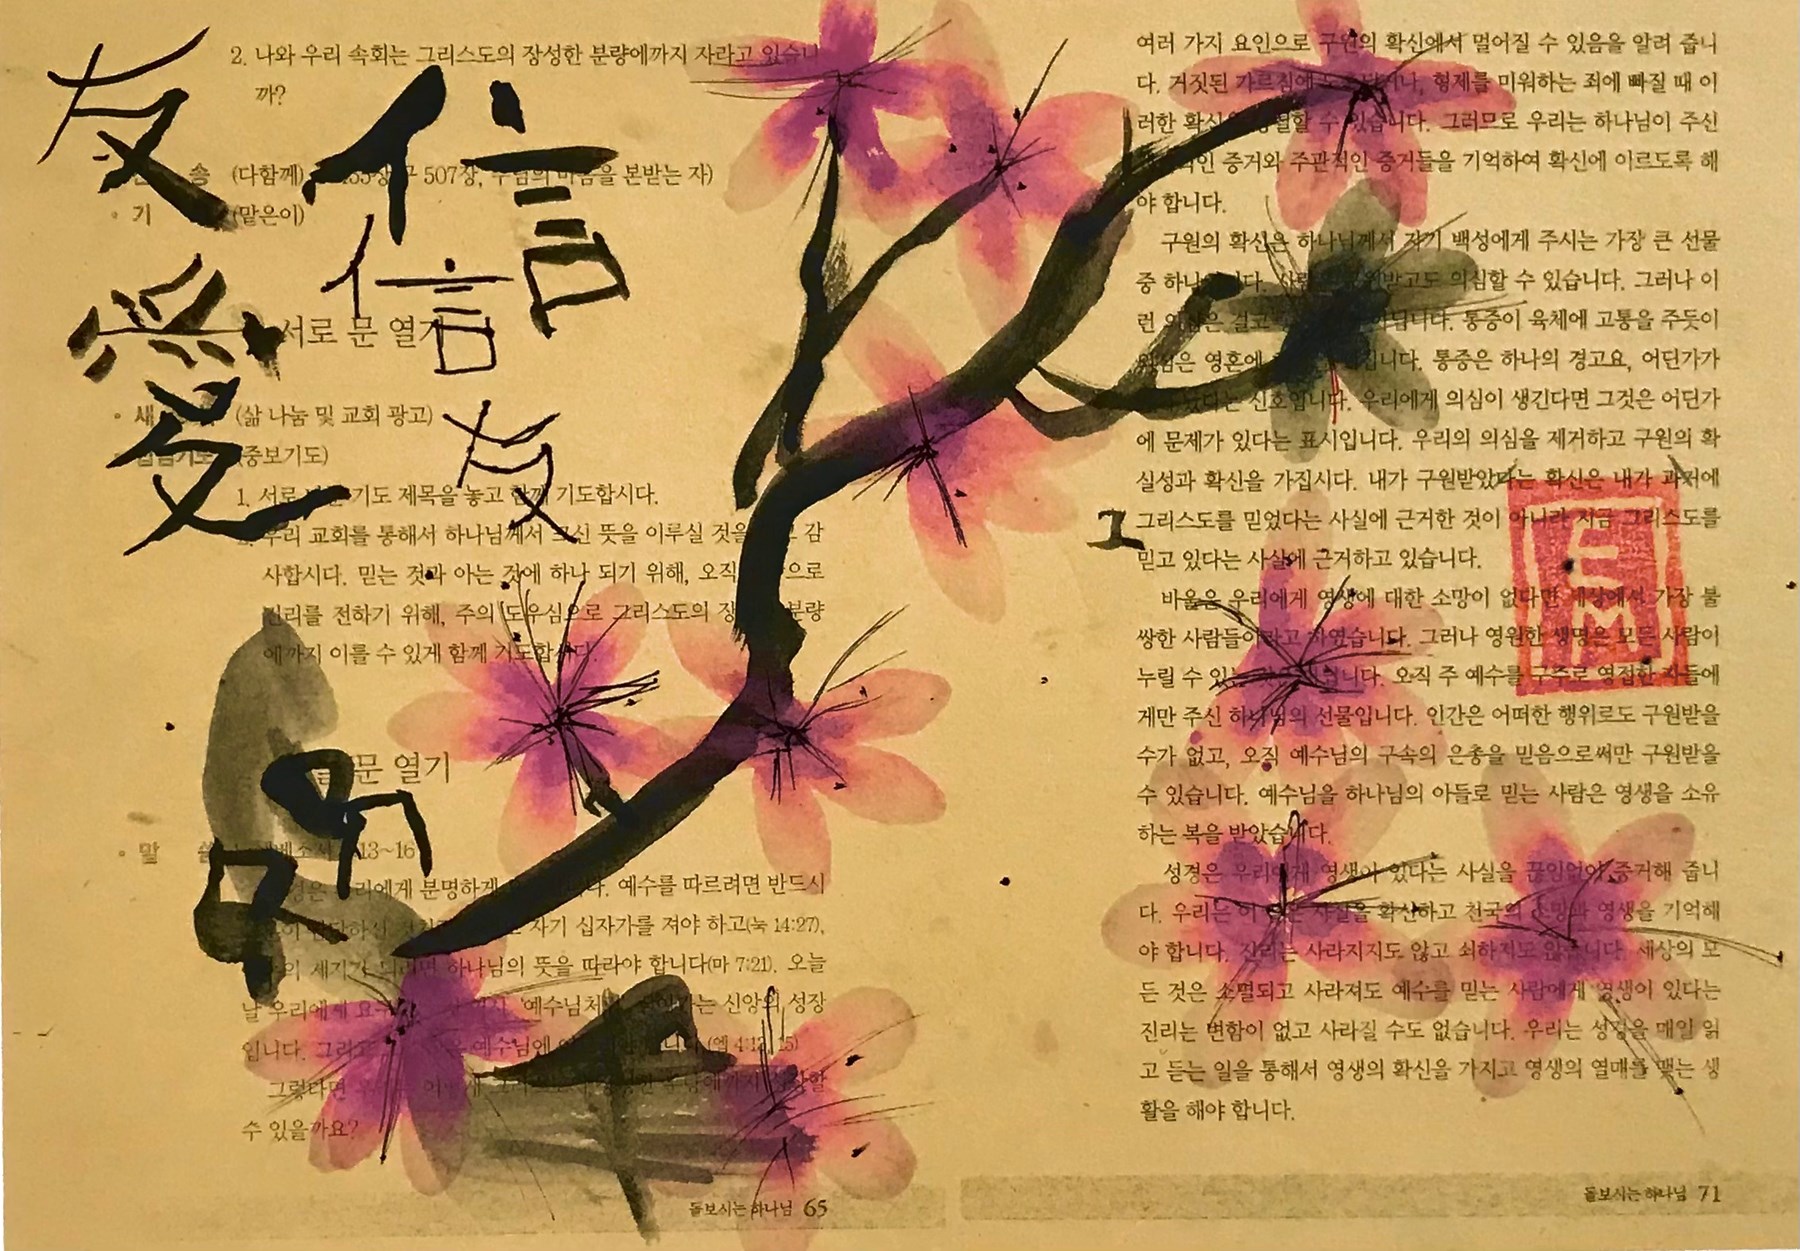 友
愛
信
信
友
2. 나와 우리 속회는 그리스도의 장성한 분량에까지 자라고 있습니
까?
송 (다함께) 507장, 주님의 마음을 본받는 자)
• 기 (맡은이)
서로 문 열기
• 새 (삶 나눔 및 교회 광고)
(중보기도)
1. 서로 기도 제목을 놓고 함께 기도합시다.
우리 교회를 통해서 하나님께서 크신 뜻을 이루실 것을 감
사합시다. 믿는 것과 아는 것에 하나 되기 위해, 오직 으로
진리를 전하기 위해, 주의 도우심으로 그리스도의 장 분량
에까지 이를 수 있게 함께 기도합시다.
문 열기
• 말 13~16
에게 분명하게 예수를 따르려면 반드시
자기 십자가를 져야 하고(눅 14:27),
하나님의 뜻을 따라야 합니다(마 7:21). 오늘
날 우리에게 신앙의 성장
입니다. (엡 4:13, 15)
그렇다면
수 있을까요?
돌보시는 하나님 65
여러 가지 요인으로 구원의 확신에서 멀어질 수 있음을 알려 줍니
다. 거짓된 가르침에 형제를 미워하는 죄에 빠질 때 이
러한 확신을 수 있습니다. 그러므로 우리는 하나님이 주신
증거와 주관적인 증거들을 기억하여 확신에 이르도록 해
야 합니다.
구원의 확신은 하나님께서 자기 백성에게 주시는 가장 큰 선물
중 의심할 수 있습니다. 그러나 이
런 통증이 육체에 고통을 주듯이
영혼에 통증은 하나의 경고요, 어딘가가
신호입니다. 우리에게 의심이 생긴다면 그것은 어딘가
에 문제가 있다는 표시입니다. 우리의 의심을 제거하고 구원의 확
실성과 확신을 가집시다. 내가 구원받았다는 확신은 내가 과거에
그리스도를 믿었다는 사실에 근거한 것이 아니라 지금 그리스도를
믿고 있다는 사실에 근거하고 있습니다.
바울은 우리에게 영생에 대한 소망이 없다면 세상에서 가장 불
쌍한 사람들이라고 하였습니다. 그러나 영원한 생명은 모든 사람이
누릴 수 있는 오직 주 예수를 구주로 영접한 자들에
게만 주신 하나님의 선물입니다. 인간은 어떠한 행위로도 구원받을
수가 없고, 오직 예수님의 구속의 은총을 믿음으로써만 구원받을
수 있습니다. 예수님을 하나님의 아들로 믿는 사람은 영생을 소유
하는 복을 받았습니다.
성경은 우리에게 영생이 있다는 사실을 끊임없이 증거해 줍니
다. 우리는 이 사실을 확신하고 천국의 소망과 영생을 기억해
야 합니다. 진리는 사라지지도 않고 쇠하지도 않습니다. 세상의 모
든 것은 소멸되고 사라져도 예수를 믿는 사람에게 영생이 있다는
진리는 변함이 없고 사라질 수도 없습니다. 우리는 성경을 매일 읽
고 듣는 일을 통해서 영생의 확신을 가지고 영생의 열매를 맺는 생
활을 해야 합니다.
돌보시는 하나님 71